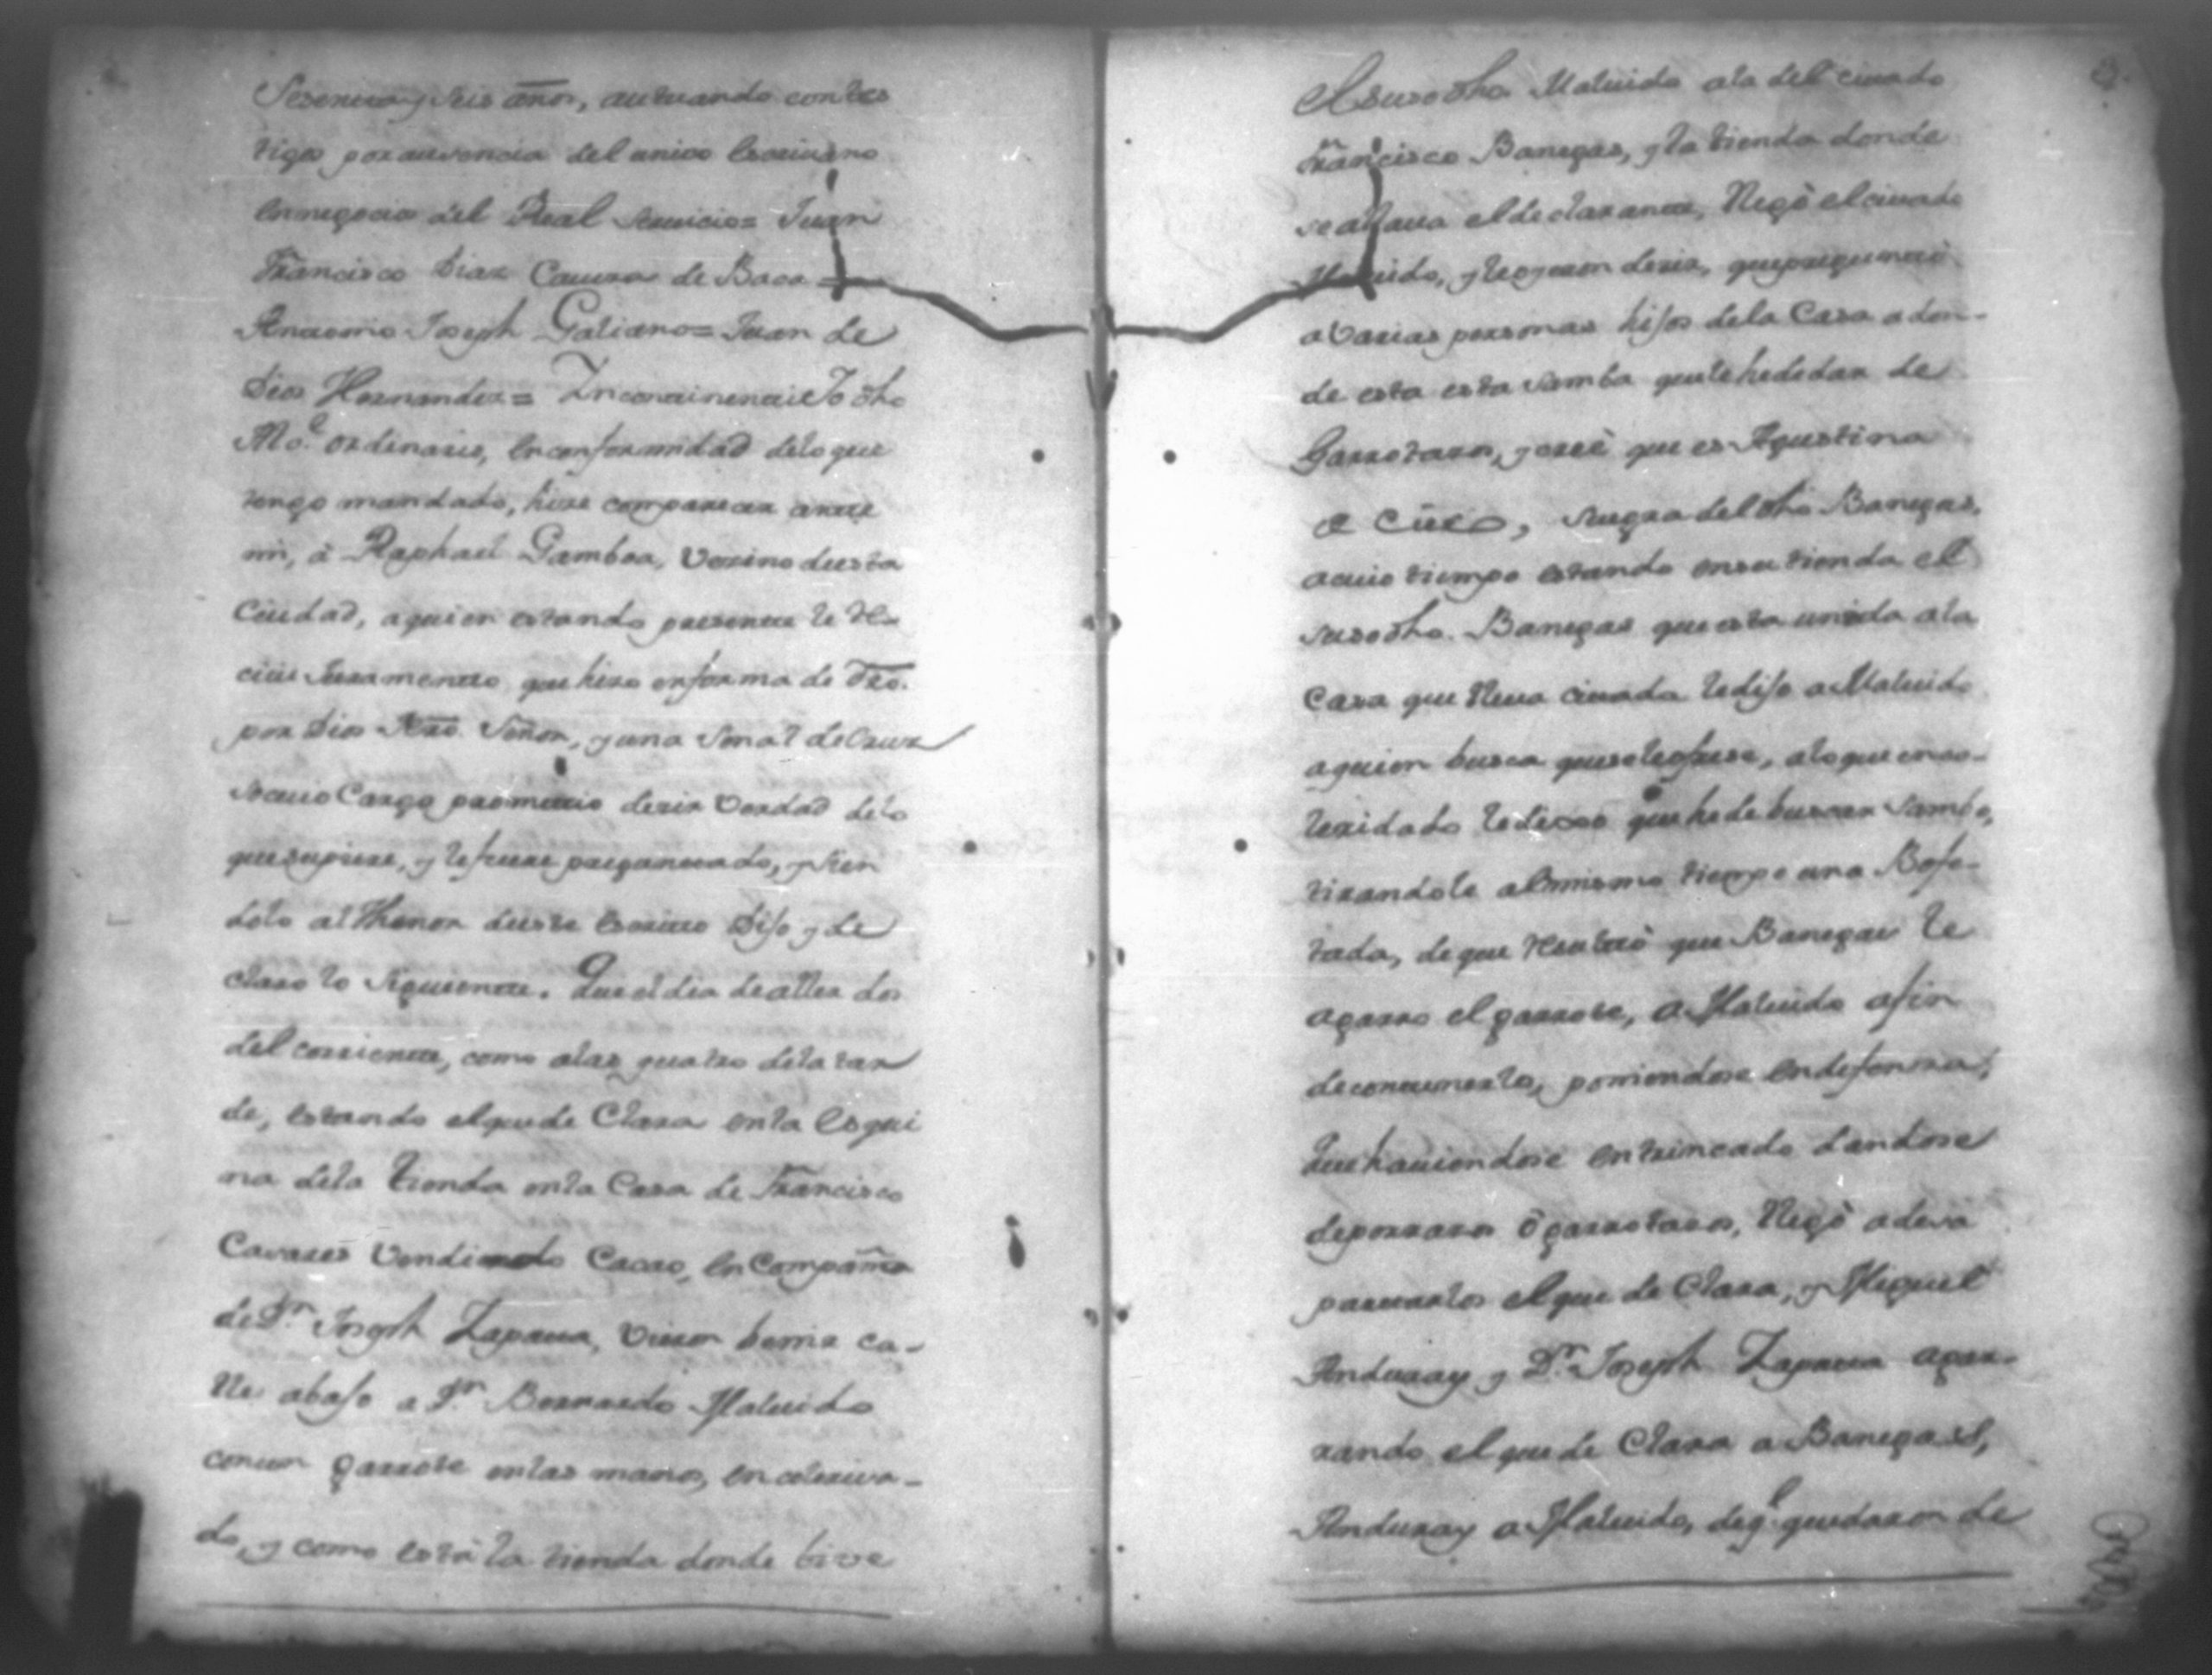 Sesenta y Seis años, autuando con tes
tigos por ausencia del unico Escriuano
en negocios del Real Seruicio= Juan
Francisco Diaz Caueza de Baca =
Antonio Joseph Galiano= Juan de
Dios Hernandez= Incontinenti Yo dho
Alc.e ordinario, en conformidad delo que
tengo mandado, hize comparecer ante
mi, à Raphael Gamboa, Vezino de esta
Ciudad, a quien estando presente le Re
ciui Juramento que hizo en forma de dro.
por Dios Nro. Señor, y una Senal de Cruz
so cuio Cargo prometio dezir Verdad delo
que supiere, y le fuere preguntado, y sien
dolo al thenor de este Escrito Dijo y de
claro lo siguiente. Que el dia de aller dos
del corriente, como alas quatro dela tar
de, estando el que de Clara en la esqui
na dela tienda en la Casa de Francisco
Cavares Vendiendo Cacao, en Compañia
de D.n Joseph Zapata, Vieron benir ca-
lle abajo a D.n Bernardo Maluido
con un garrote en las manos, en coleriza-
do, y como està la tienda donde bive
El suso dho Maluido ala del citado
Francisco Banegas, y la tienda donde
se allaua el declarante, llegò el citado
Maluido, y le oyeron dezir, que preguntò
a Varias personas hijos dela Casa a don-
de esta esta Samba que le he de dar de
Garrotazos, y creè que es Agustina
suegra del dho Banegas,
a cuio tiempo estando en su tienda el
suso dho. Banegas que esta unida ala
Casa que lleua citada le dijo a Maluido
a quien busca que se le ofrese, alo que enco-
lerizado le dixo que he de buscar Sambo,
tirandole al mismo tiempo una Bofe-
tada, de que resultò que Banegas le
agarro el garrote, a Maluido a fin
de contenerlo, poniendose en defensa,
Que hauiendose entrincado dandose
de porrazos ò garrotazos, llegò a desa
partarlos el que de Clara, y Miguel
Anduray y D.n Joseph Zapata agar-
rando el que de Clara a Banegas,
Anduray a Maluido, de q.e quedaron de